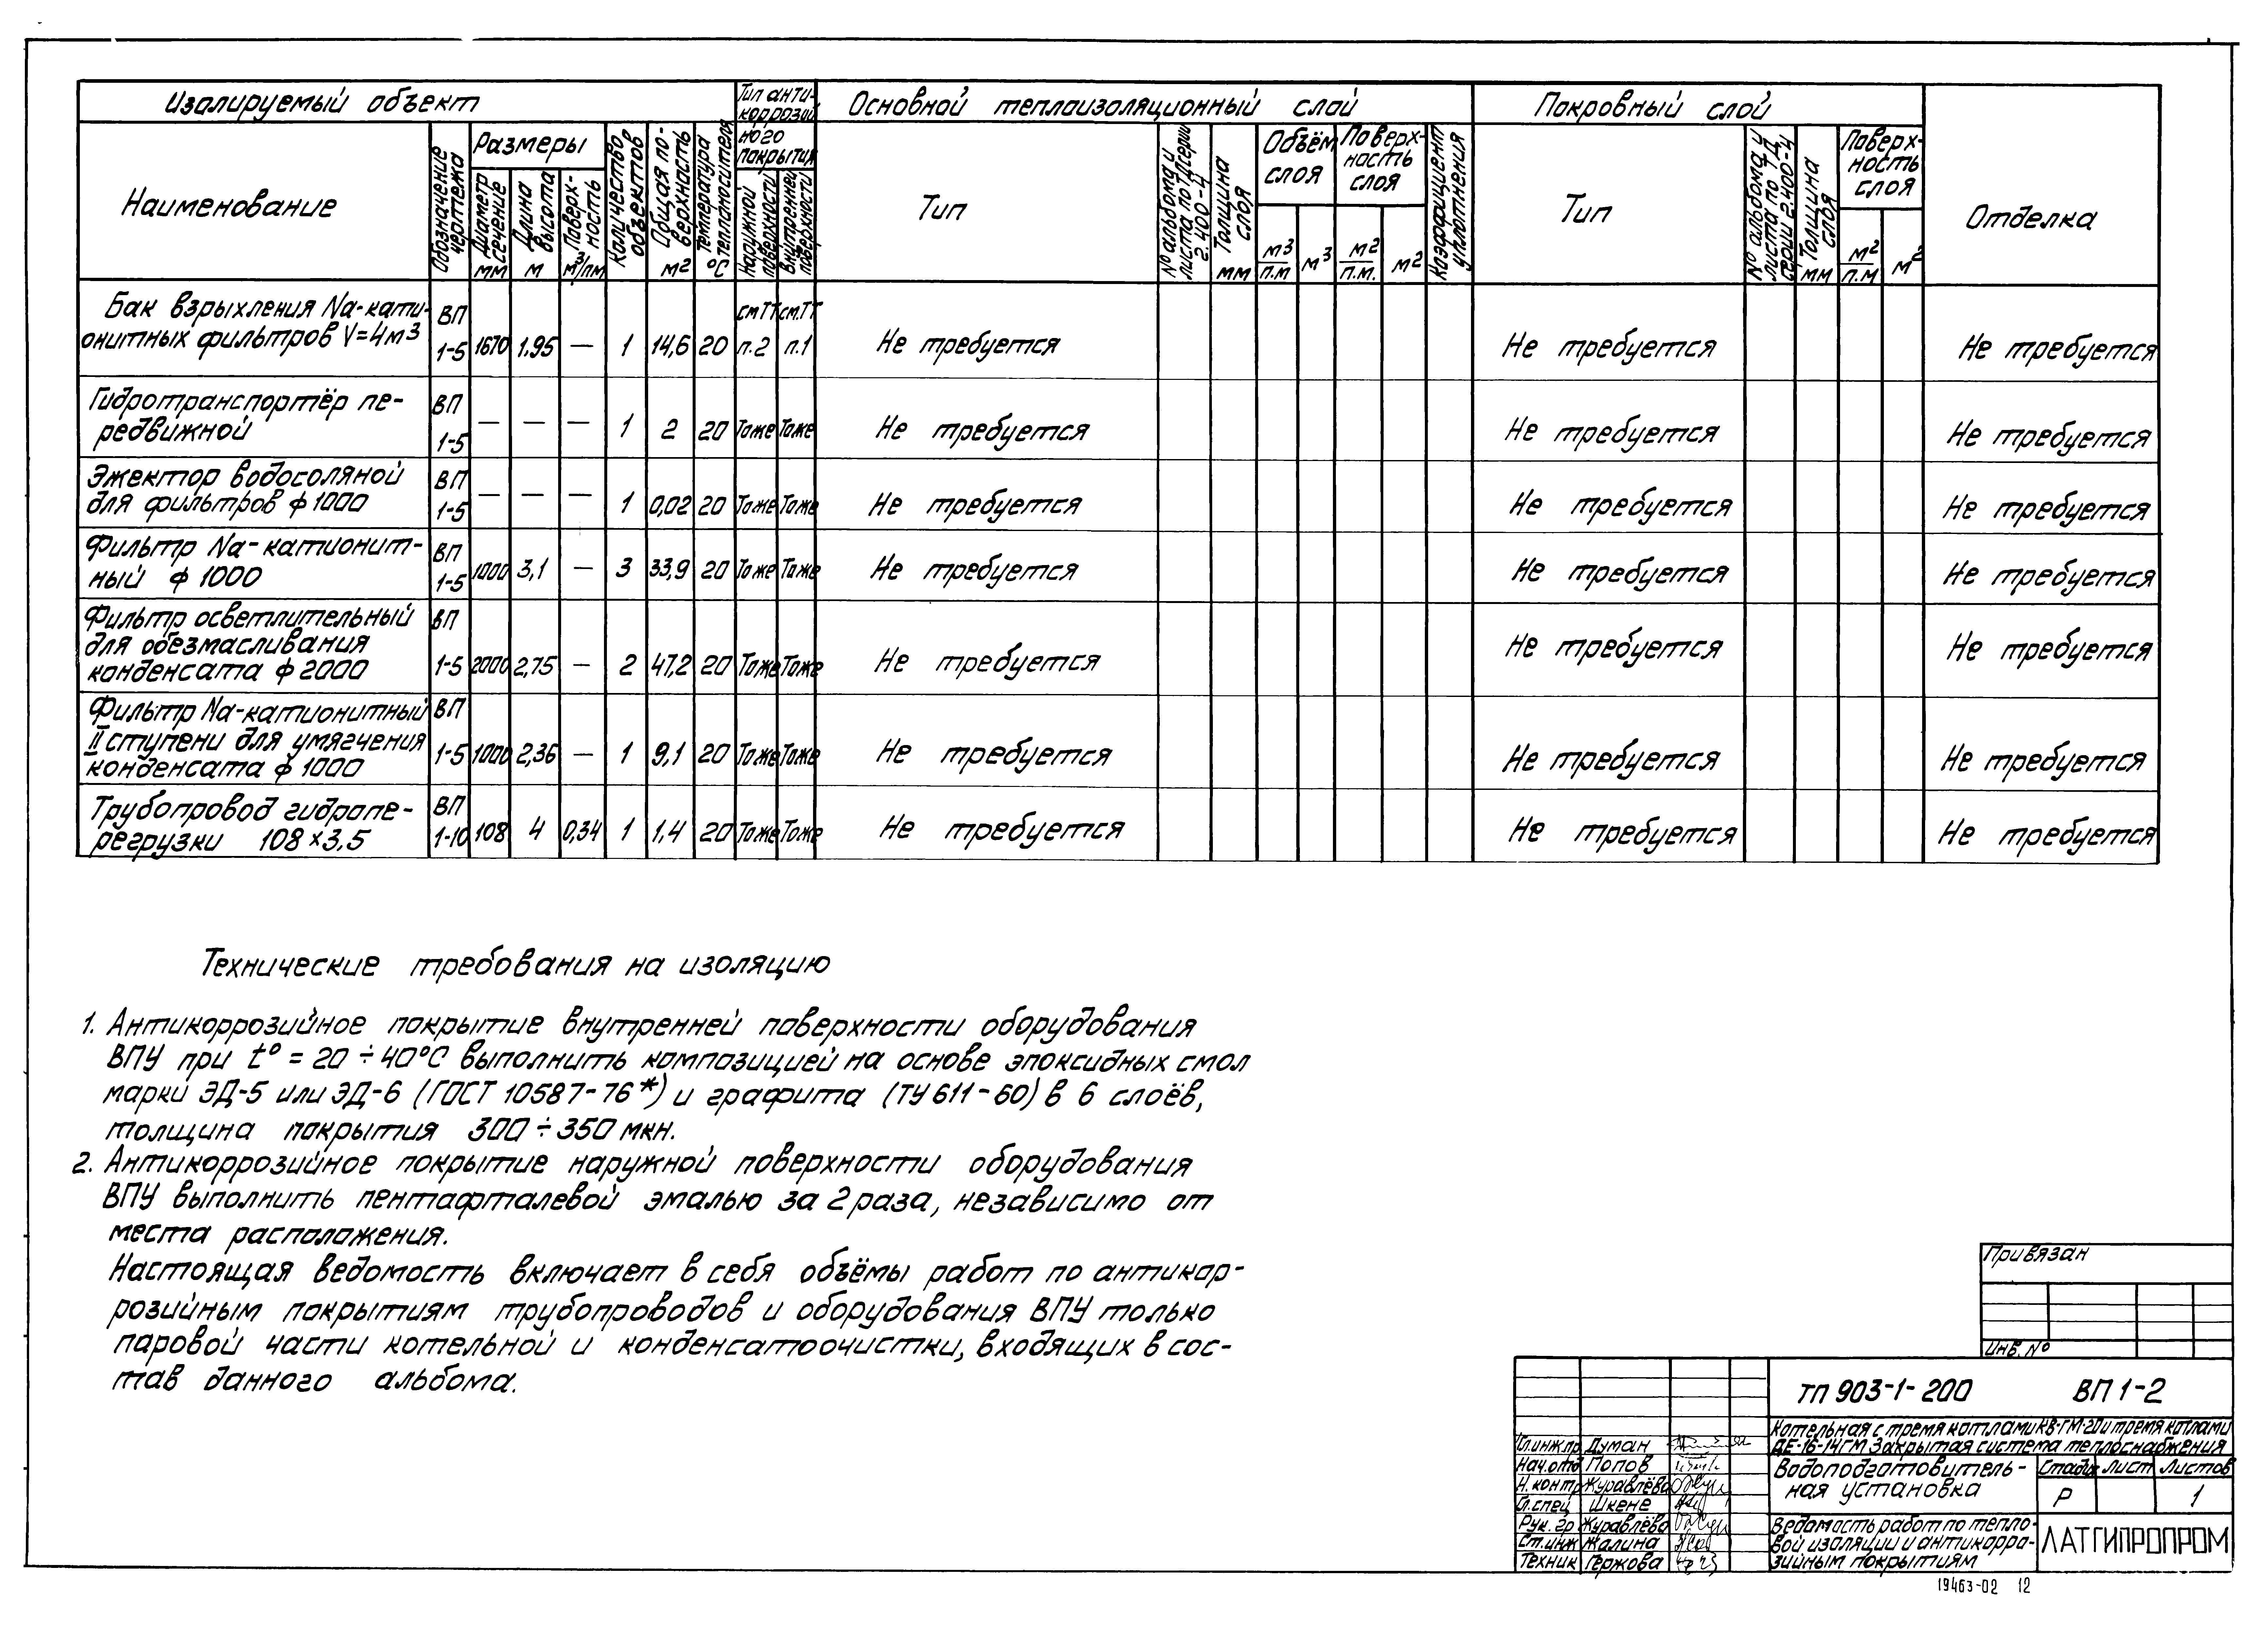 Изолируемый объект
Тип анти-
коррозий
ного
покрытия
Основной теплоизоляционный слой
Покровный слой
Отделка
Наименование
Обозначение чертежа
Размеры
Диаметр сечение
мм
Длина высота
м
Поверх-ность
м³/пм
Количество объектов
Общая по-верхность
м²
Температура теплоносителя
°С
Наружной поверхности
Внутренней поверхности
Тип
№ альбома и листа по ТД серии 2.400-4
Толщина слоя
мм
Объём
слоя
м³/п.м
м³
Поверх-
ность
слоя
м²/п.м.
м²
Коэффициент уплотнения
Тип
№ альбома и листа по ТД серии 2.400-4
Толщина слоя
мм
Поверх-
ность
слоя
м²/п.м
м²
Бак взрыхления Na-кати- ВП см.ТТ см.ТТ
онитных фильтров V=4м³ 1-5 1670 1,95 — 1 14,6 20 п.2 п.1 Не требуется Не требуется Не требуется
Гидротранспортёр пе- ВП
редвижной 1-5 — — — 1 2 20 Тоже Тоже Не требуется Не требуется Не требуется
Эжектор водосоляной ВП
для фильтров ф 1000 1-5 — — — 1 0,02 20 Тоже Тоже Не требуется Не требуется Не требуется
Фильтр Na-катионит- ВП
ный ф 1000 1-5 1000 3,1 — 3 33,9 20 Тоже Тоже Не требуется Не требуется Не требуется
Фильтр осветлительный ВП
для обезмасливания
конденсата ф 2000 1-5 2000 2,75 — 2 47,2 20 Тоже Тоже Не требуется Не требуется Не требуется
Фильтр Na-катионитный ВП
II ступени для умягчения 1-5 1000 2,36 — 1 9,1 20 Тоже Тоже Не требуется Не требуется Не требуется
конденсата ф 1000
Трубопровод гидропе- ВП
регрузки 108×3,5 1-10 108 4 0,34 1 1,4 20 Тоже Тоже Не требуется Не требуется Не требуется
Технические требования на изоляцию
1. Антикоррозийное покрытие внутренней поверхности оборудования
ВПУ при t° = 20 ÷ 40°С выполнить композицией на основе эпоксидных смол
марки ЭД-5 или ЭД-6 (ГОСТ 10587-76*) и графита (ТУ 611-60) в 6 слоёв,
толщина покрытия 300 ÷ 350 мкн.
2. Антикоррозийное покрытие наружной поверхности оборудования
ВПУ выполнить пентафталевой эмалью за 2 раза, независимо от
места расположения.
Настоящая ведомость включает в себя объёмы работ по антикор-
розийным покрытиям трубопроводов и оборудования ВПУ только
паровой части котельной и конденсатоочистки, входящих в сос-
тав данного альбома.
Привязан
Инв. №
ТП 903-1-200 ВП 1-2
Котельная с тремя котлами КВ-ГМ-20 и тремя котлами
ДЕ-16-14ГМ Закрытая система теплоснабжения
Гл.инж.пр Думан
Нач.отд Попов
Н.контр Журавлёва
Гл.спец Шкене
Рук.гр Журавлёва
Ст.инж Жалина
Техник Гержова
Водоподготовитель-
ная установка
Стадия Лист Листов
Р 1
Ведомость работ по тепло-
вой изоляции и антикорро-
зийным покрытиям
ЛАТГИПРОПРОМ
19463-02 12